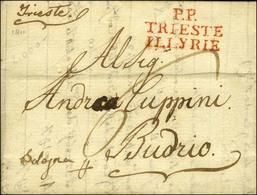 Trieste.
1811
P.P.
TRIESTE
ILLYRIE
Al Sig.
Andrea Cuppini.
Bologna p
Budrio.